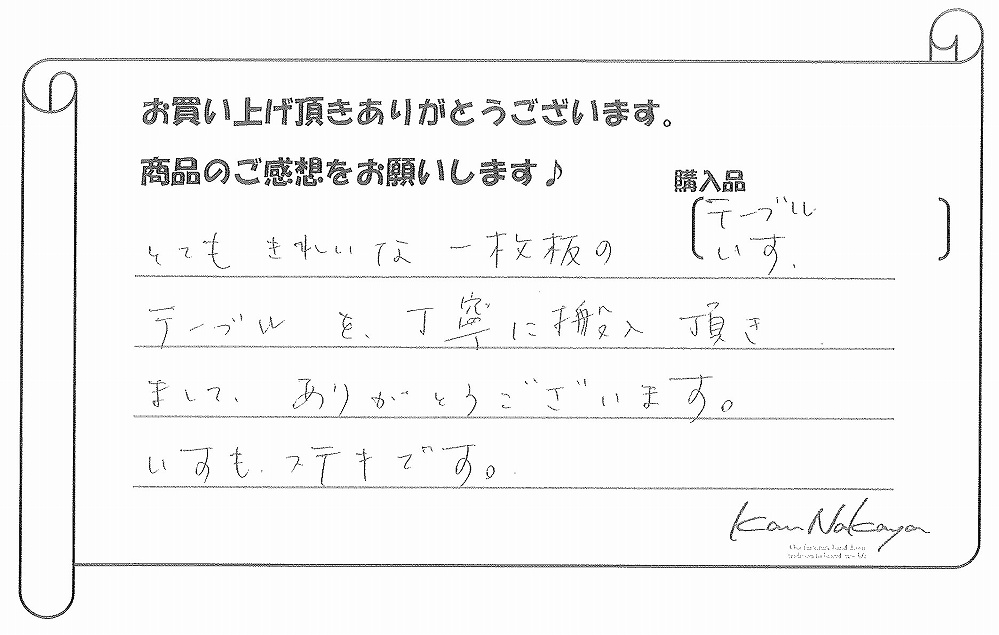 お買い上げ頂きありがとうございます。
商品のご感想をお願いします♪
購入品
テーブル
いす.
とても きれいな 一枚板の
テーブル を、丁寧に搬入 頂き
まして、ありがとうございます。
いすも、ステキです。
Kan Nakaya